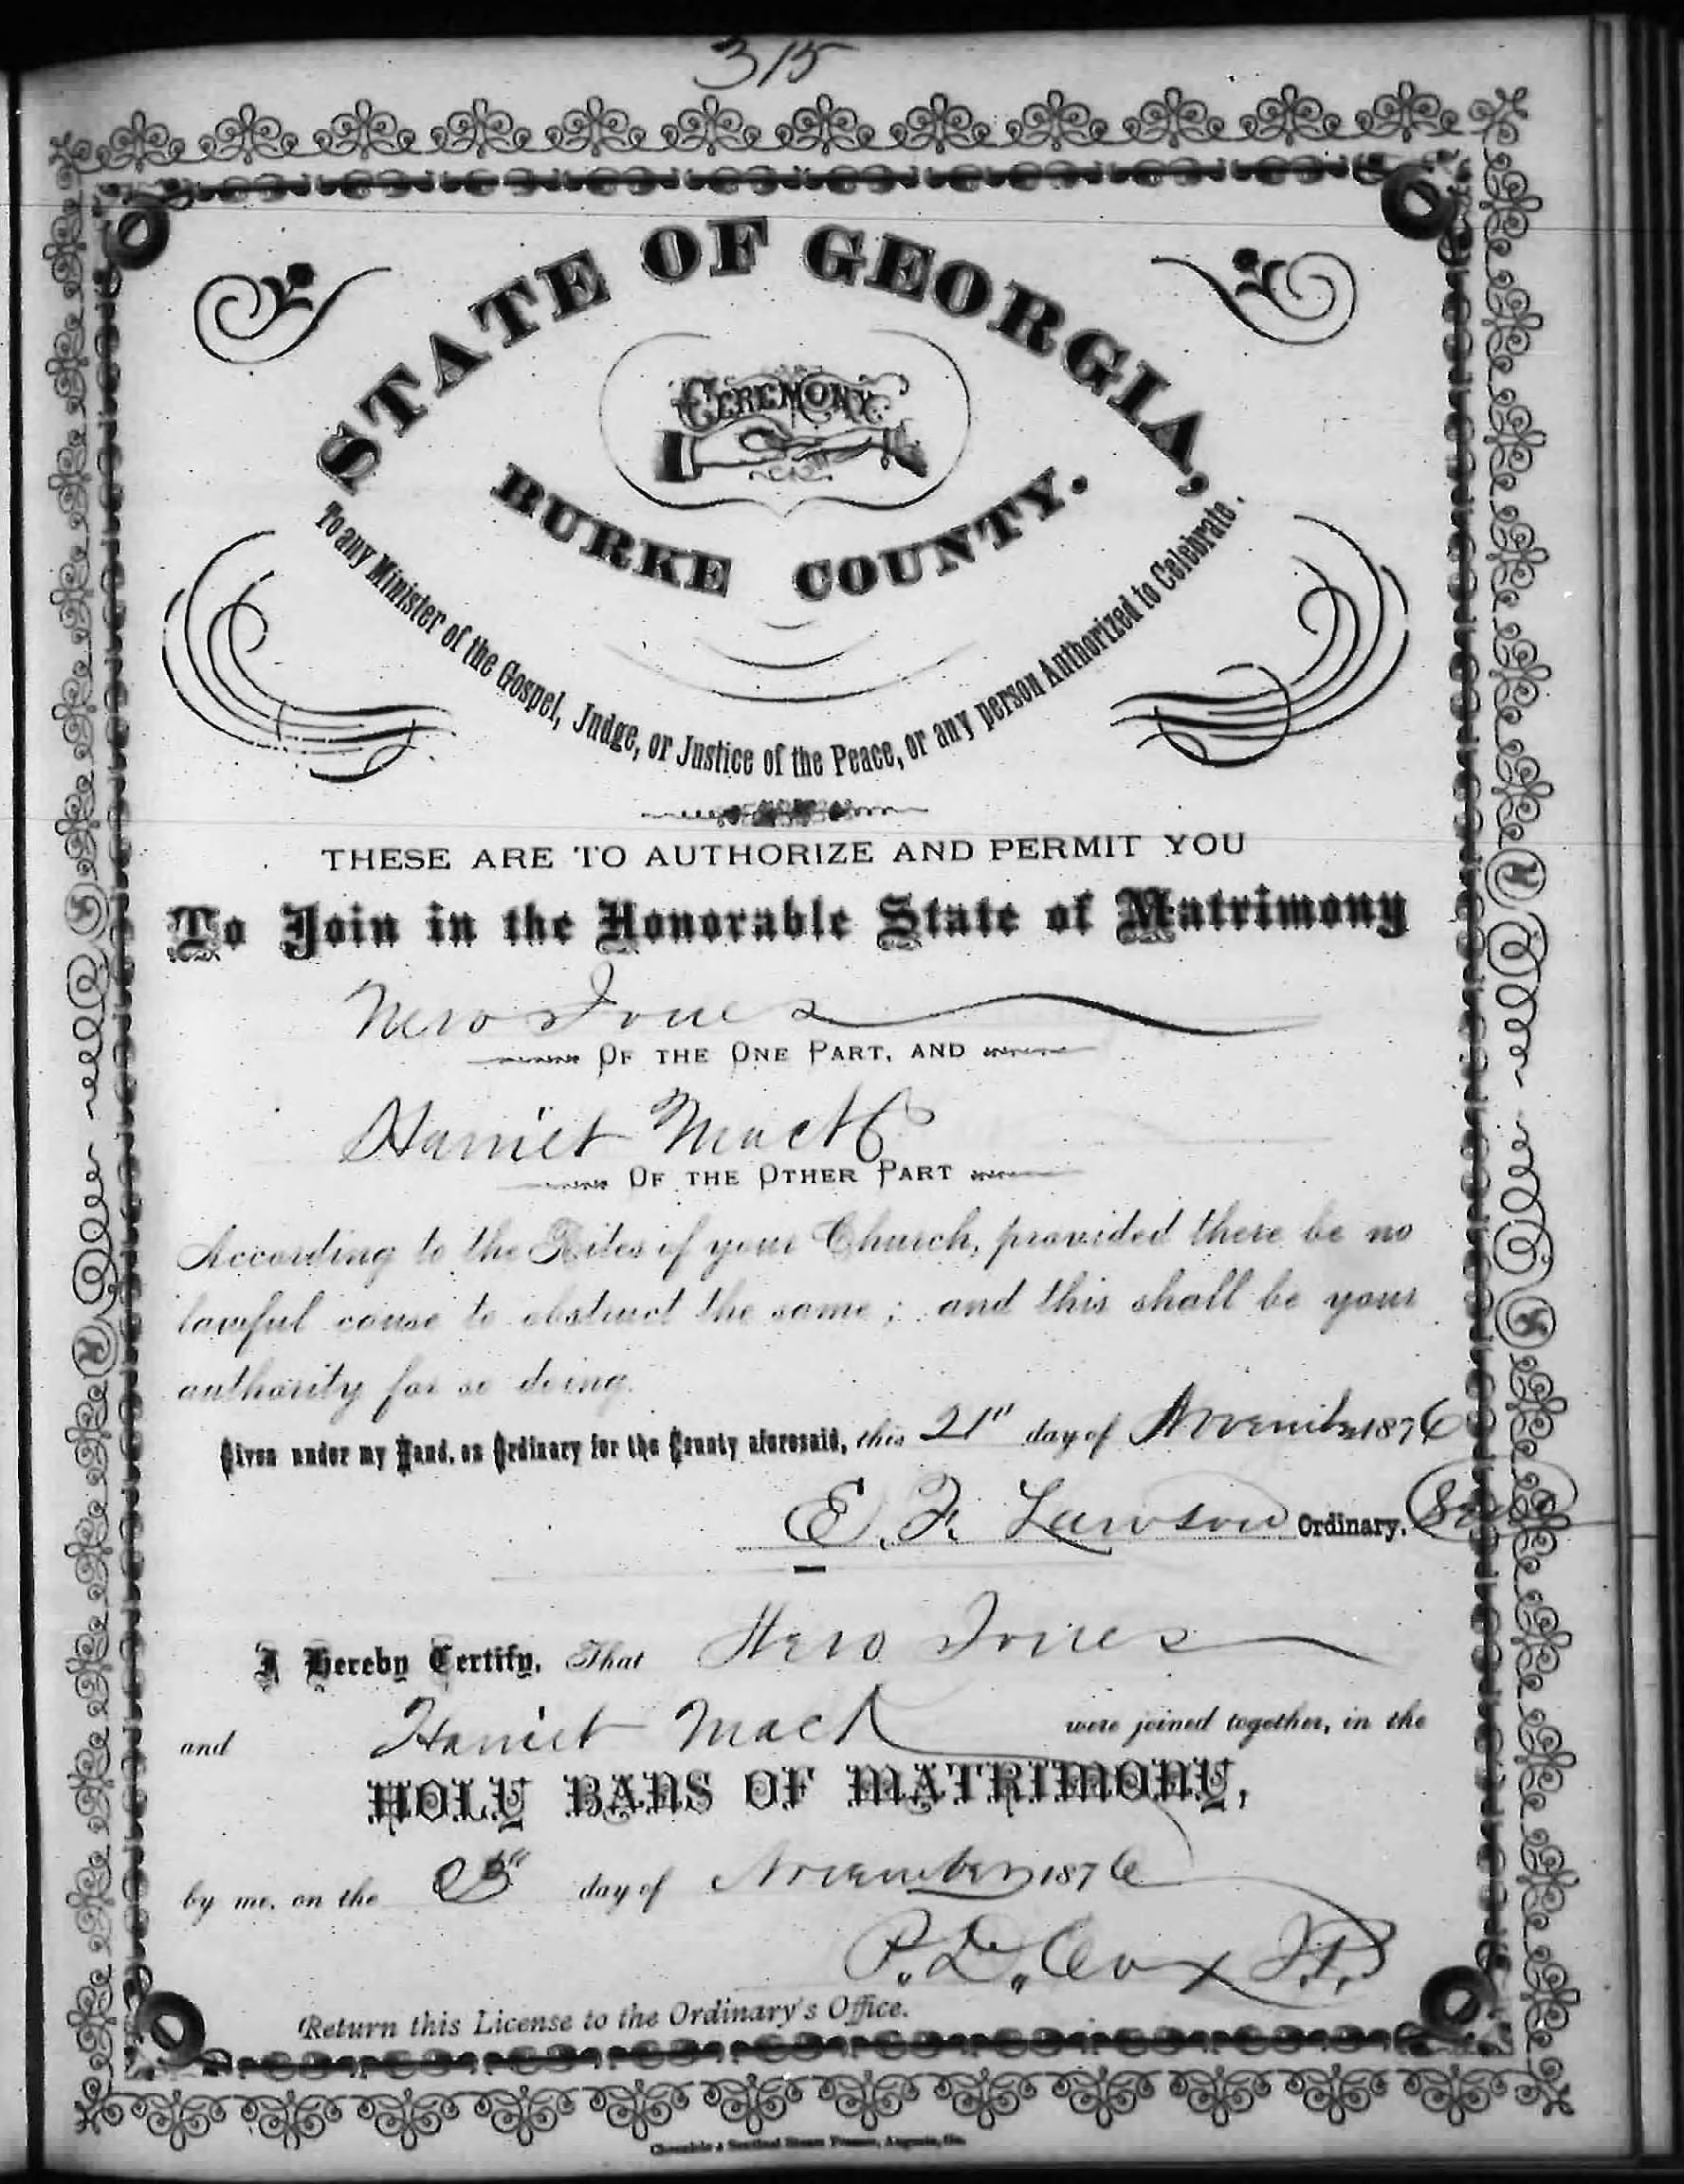 315
STATE OF GEORGIA,
CEREMONY
BURKE COUNTY.
To any Minister of the Gospel, Judge, or Justice of the Peace, or any person Authorized to Celebrate.
THESE ARE TO AUTHORIZE AND PERMIT YOU
To Join in the Honorable State of Matrimony
Nero Jones
OF THE ONE PART, AND
Harriet Mack
OF THE OTHER PART
According to the Rites of your Church, provided there be no
lawful cause to obstruct the same; and this shall be your
authority for so doing.
Given under my Hand, as Ordinary for the County aforesaid, this 21" day of November 1876
E. F. Lawson Ordinary. Seal
I Hereby Certify, That Nero Jones
and Harriet Mack were joined together, in the
HOLY BANS OF MATRIMONY,
by me, on the day of November 1876
P. D. Cox J.P.
Return this License to the Ordinary's Office.
Chronicle & Sentinel Steam Presses, Augusta, Ga.